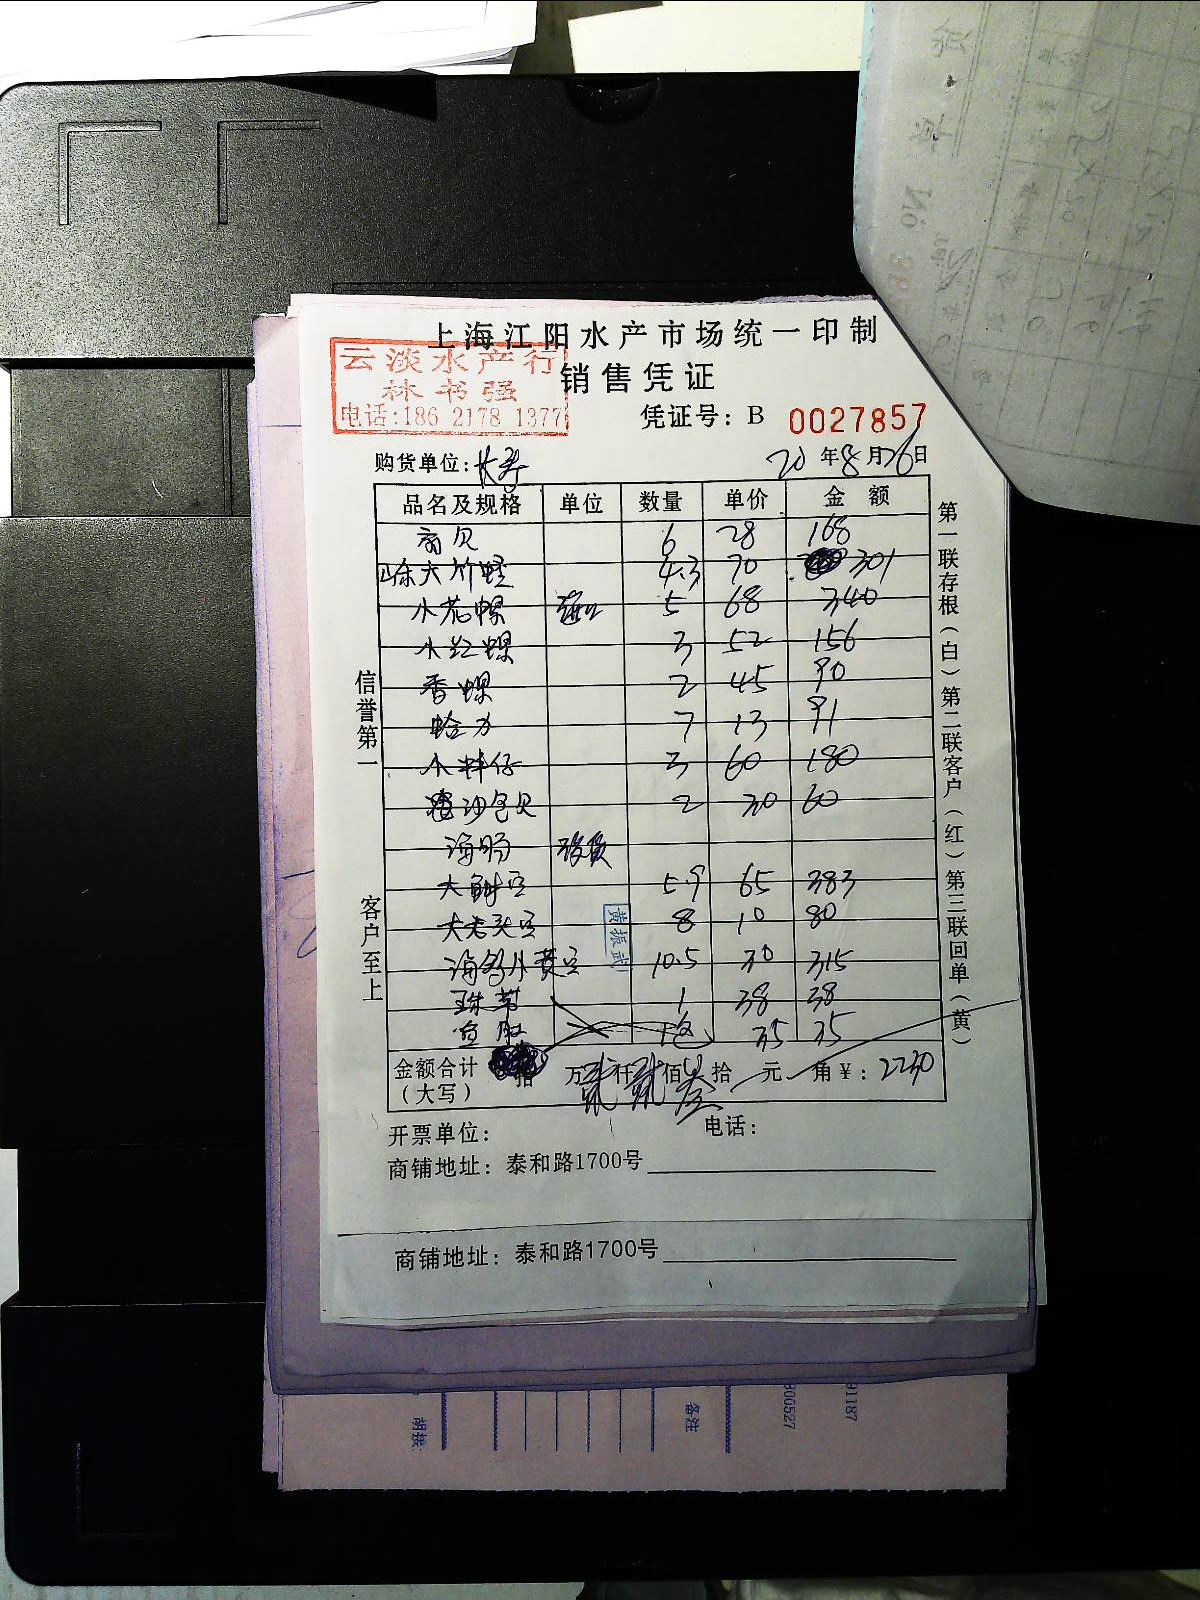 上海江阳水产市场统一印制
云淡水产行
林书强
电话:186 2178 1377
销售凭证
凭证号: B 0027857
购货单位: 长寿
20 年 8 月 26 日
品名及规格 单位 数量 单价 金额
扇贝 6 28 168
大竹蛏 4.3 70 301
小花螺 5 68 340
小红螺 3 52 156
香螺 2 45 90
蛤 7 13 91
小 仔 3 60 180
沙包贝 2 30 60
海肠
大 5.9 65 383
大老头 8 10 80
海 小黄 10.5 30 315
珠带 1 38 38
鱼肚 1包 35 35
黄振武
金额合计(大写) 拾 万 贰 仟 贰 佰 叁 拾 元 角 ¥: 2230
开票单位: 电话:
商铺地址: 泰和路1700号
商铺地址: 泰和路1700号
信誉第一
客户至上
第一联存根(白)第二联客户(红)第三联回单(黄)
No
备注
800527
91187